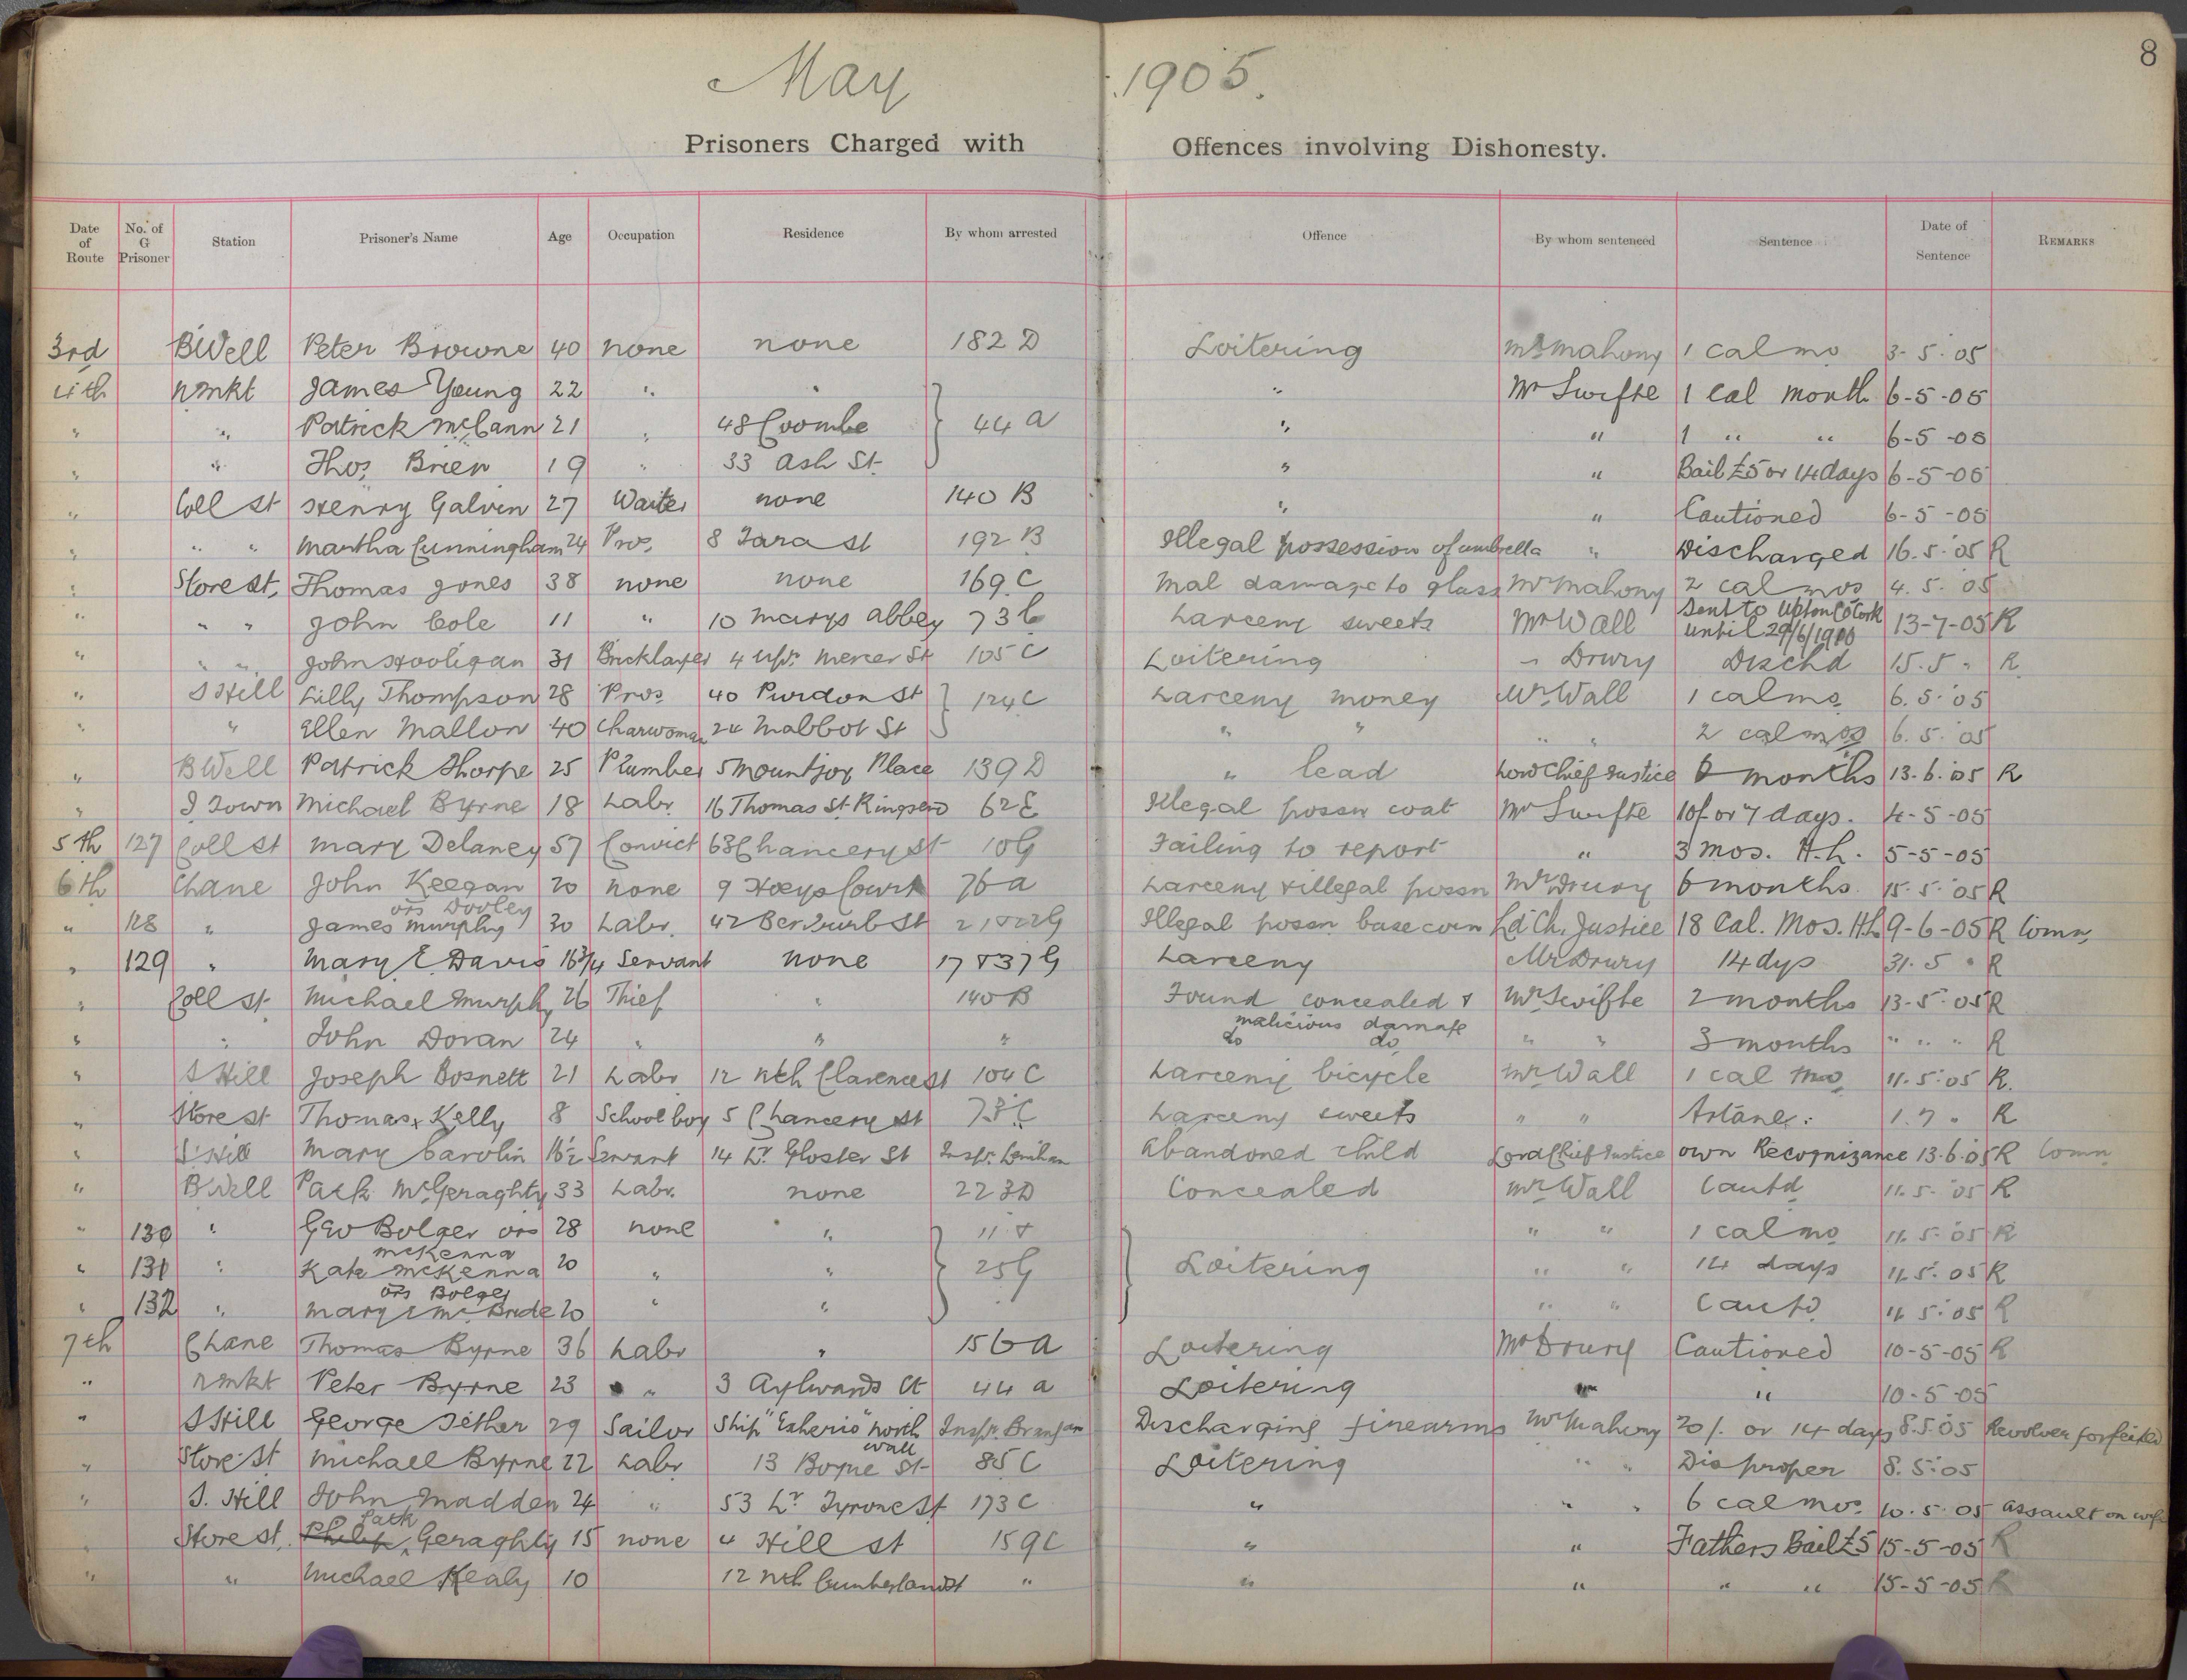 8
May 1905.
Prisoners Charged with Offences involving Dishonesty.
Date of Route No. of G Prisoner Station Prisoner's Name Age Occupation Residence By whom arrested Offence By whom sentenced Sentence Date of Sentence REMARKS
3rd BWell Peter Browne 40 none none 182 D Loitering Mr Mahony 1 cal mo 3-5-'05
4th nmkt James Young 22 " " Mr Swifte 1 Cal Month 6-5-05
" " Patrick McCann 21 " 48 Coombe 44 A " " 1 " " 6-5-05
" " Thos Brien 19 " 33 Ash St. " " Bail £5 or 14 days 6-5-05
" Coll St Henry Galvin 27 Waiter none 140 B " " Cautioned 6-5-05
" " " Martha Cunningham 24 Pros. 8 Tara St 192 B Illegal possession of umbrella " Discharged 16.5.'05 R
" Store St. Thomas Jones 38 none none 169 C Mal damage to glass Mr Mahony 2 cal mos 4.5.05
" " " John Cole 11 " 10 Marys Abbey 73 C Larceny sweets Mr Wall Sent to Upton Co Cork until 29/6/1910 13-7-05 R
" " " John Hooligan 31 Bricklayer 4 Upr. Mercer St 105 C Loitering " Drury Dischd 15.5 " R
" S Hill Lilly Thompson 28 Pros 40 Purdon St 124 C Larceny money Mr Wall 1 cal mo 6.5.'05
" " Ellen Mallon 40 Charwoman 24 Mabbot St " " " " 2 cal mos 6.5.'05
" B Well Patrick Thorpe 25 Plumber 5 Mountjoy Place 139 D " lead Lord Chief Justice 6 months 13.6.'05 R
" I Town Michael Byrne 18 Labr. 16 Thomas St. Ringsend 62 E Illegal possn coat Mr Swifte 10/- or 7 days. 4-5-05
5th 127 Coll St Mary Delaney 57 Convict 63 Chancery St 10 G Failing to report " 3 Mos. H.L. 5-5-05
6th Chane John Keegan 20 none 9 Hoeys Court 76 A Larceny & illegal possn Mr Drury 6 months 15.5.'05 R
ors Dooley
" 128 " James Murphy 30 Labr. 42 Ber St 21 & 22 G Illegal possn base coin Ld Ch. Justice 18 Cal. Mos. H.L. 9-6-05 R Comn.
" 129 " Mary E. Davis 16 3/4 Servant none 17 & 37 G Larceny Mr Drury 14 dys 31.5 " R
" Coll St. Michael Murphy 26 Thief " 140 B Found concealed & Mr Swifte 2 months 13-5-'05 R
malicious damage
" " John Doran 24 " " " do do " " 3 months " " " R
" S Hill Joseph Bosnett 21 Labr 12 Nth Clarence St 104 C Larceny bicycle Mr Wall 1 cal mo 11.5.'05 R.
" Store St Thomas Kelly 8 School boy 5 Chancery St 73 C Larceny sweets " " Artane. 1.7 " R
" S. Hill Mary Carolin 16½ Servant 14 Lr. Gloster St Inspr. Lenihan Abandoned child Lord Chief Justice own Recognizance 13.6.05 R Comn
" B Well Patk McGeraghty 33 Labr. none 223 D Concealed Mr Wall Cautd 11.5.'05 R
" 130 " Geo Bolger ors 28 none " 11 & " " 1 cal mo 11.5.'05 R
McKenna
" 131 " Kate McKenna 20 " " 25 G Loitering " " 14 days 11.5.05 R
ors Bolger
" 132 " Mary E McBride 20 " " " " Cautd 11.5.'05 R
7th Chane Thomas Byrne 36 Labr " 156 A Loitering Mr Drury Cautioned 10-5-05 R
" nmkt Peter Byrne 23 " 3 Aylwards Ct 44 A Loitering " " 10-5-05
" S Hill George Tether 29 Sailor Ship "Esherio" North Wall Inspr. Discharging firearms Mr Mahony 20/. or 14 days 8.5.05 Revolver forfeited
" Store St Michael Byrne 22 Labr 13 Boyne St 85 C Loitering " " Dis proper 8.5.05
" S. Hill John Madden 24 " 53 Lr Tyrone St 173 C " " " 6 cal mos. 10.5.05 assault on wife
" Store St. Philip Patk Geraghty 15 none 4 Hill St 159 C " " Fathers Bail £5 15-5-05 R
" " Michael Kealy 10 12 Nth Cumberland St " " " " " 15-5-05 R